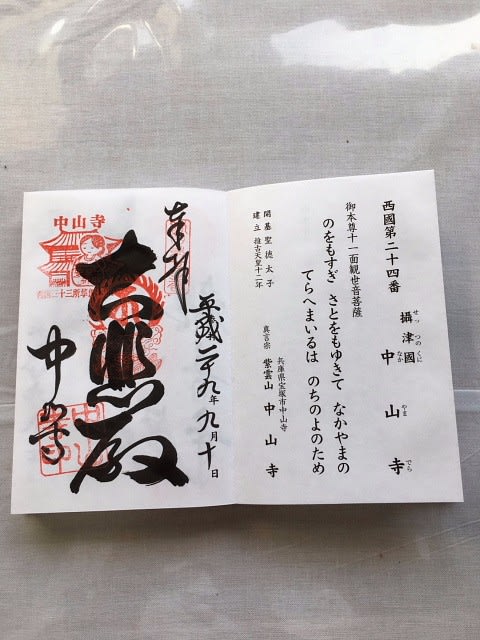 西國第二十四番
攝津國 中山寺
せっつのくに なかやまでら
御本尊十一面観世音菩薩
のをもすぎ さとをもゆきて なかやまの
てらへまいるは のちのよのため
開基聖徳太子
建立 推古天皇十二年
兵庫県宝塚市中山寺
真言宗 紫雲山 中山寺
奉拝
平成二十九年九月十日
大悲殿
中山寺
中山寺